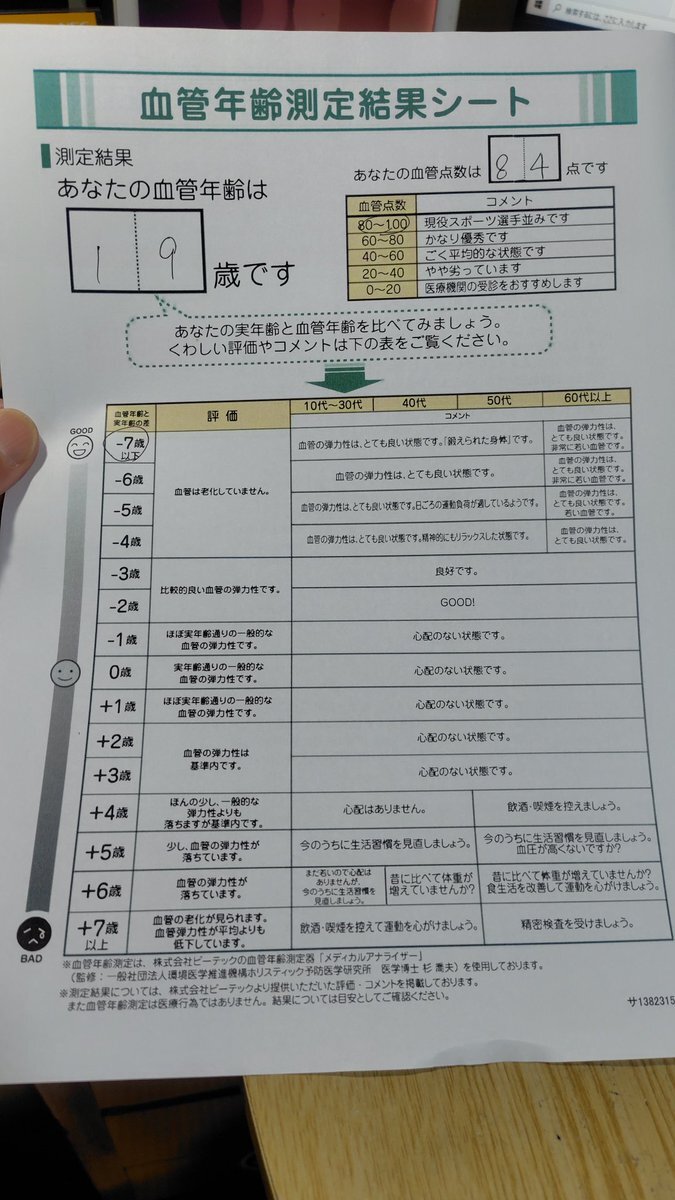 検索するには、ここに入力します
血管年齢測定結果シート
測定結果
あなたの血管年齢は
19
歳です
あなたの血管点数は 84 点です
血管点数 コメント
80〜100 現役スポーツ選手並みです
60〜80 かなり優秀です
40〜60 ごく平均的な状態です
20〜40 やや劣っています
0〜20 医療機関の受診をおすすめします
あなたの実年齢と血管年齢を比べてみましょう。
くわしい評価やコメントは下の表をご覧ください。
血管年齢と
実年齢の差
評価
10代〜30代 40代 50代 60代以上
コメント
GOOD
-7歳
以下
血管は老化していません。
血管の弾力性は、とても良い状態です。「鍛えられた身体」です。
血管の弾力性は、
とても良い状態です。
非常に若い血管です。
-6歳
血管の弾力性は、とても良い状態です。
血管の弾力性は、
とても良い状態です。
非常に若い血管です。
-5歳
血管の弾力性は、とても良い状態です。日ごろの運動負荷が適しているようです。
血管の弾力性は、
とても良い状態です。
若い血管です。
-4歳
血管の弾力性は、とても良い状態です。精神的にもリラックスした状態です。
血管の弾力性は、
とても良い状態です。
-3歳
比較的良い血管の弾力性です。
良好です。
-2歳
GOOD!
-1歳
ほぼ実年齢通りの一般的な
血管の弾力性です。
心配のない状態です。
0歳
実年齢通りの一般的な
血管の弾力性です。
心配のない状態です。
+1歳
ほぼ実年齢通りの一般的な
血管の弾力性です。
心配のない状態です。
+2歳
血管の弾力性は
基準内です。
心配のない状態です。
+3歳
心配のない状態です。
+4歳
ほんの少し、一般的な
弾力性よりも
落ちますが基準内です。
心配はありません。
飲酒・喫煙を控えましょう。
+5歳
少し、血管の弾力性が
落ちています。
今のうちに生活習慣を見直しましょう。
今のうちに生活習慣を見直しましょう。
血圧が高くないですか?
+6歳
血管の弾力性が
落ちています。
まだ若いので心配は
ありませんが、
今のうちに生活習慣を
見直しましょう。
昔に比べて体重が
増えていませんか?
昔に比べて体重が増えていませんか?
食生活を改善して運動を心がけましょう。
+7歳
以上
血管の老化が見られます。
血管弾力性が平均よりも
低下しています。
飲酒・喫煙を控えて運動を心がけましょう。
精密検査を受けましょう。
BAD
※血管年齢測定は、株式会社ビーテックの血管年齢測定器「メディカルアナライザー」
(監修:一般社団法人環境医学推進機構ホリスティック予防医学研究所 医学博士 杉 喬夫)を使用しております。
※測定結果については、株式会社ビーテックより提供いただいた評価・コメントを掲載しております。
また血管年齢測定は医療行為ではありません。結果については目安としてご確認ください。
サ1382315